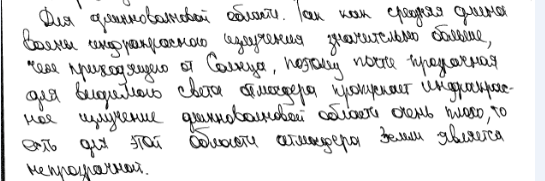 Для длинноволновой области. Так как средняя длина
волны инфракрасного излучения значительно больше,
чем приходящего от Солнца, поэтому почти прозрачная
для видимого света атмосфера пропускает инфракрас-
ное излучение длинноволновой области очень плохо, то
есть для этой области атмосфера Земли является
непрозрачной.